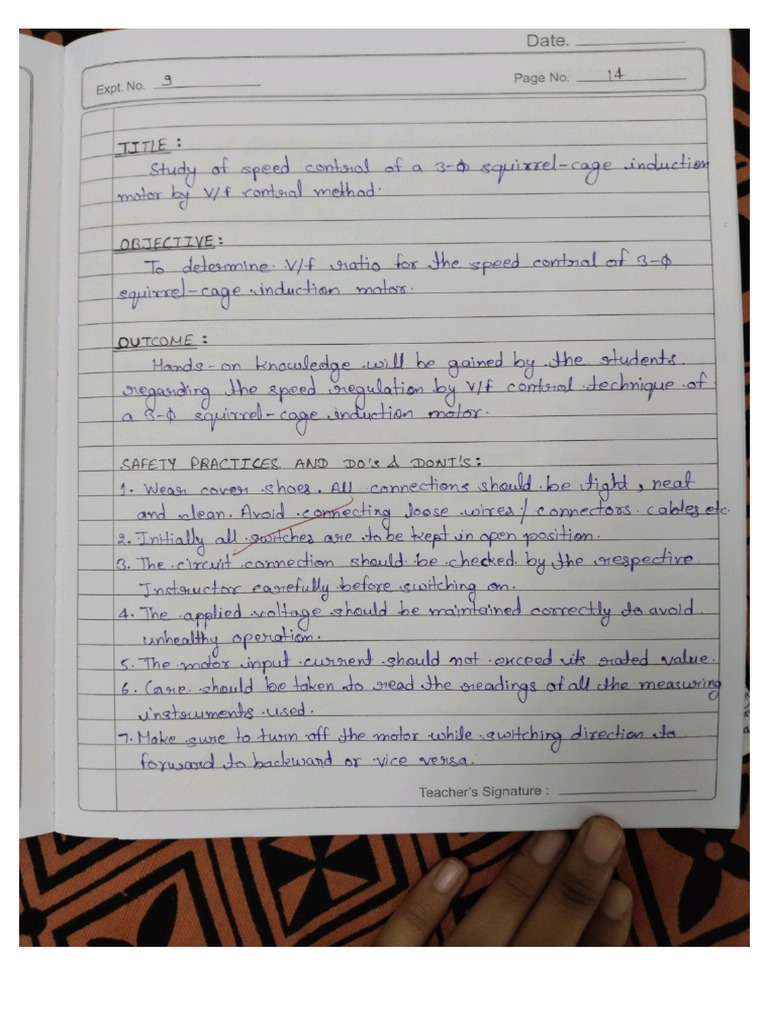 Date.
Expt. No. 9
Page No. 14
TITLE :
Study of speed control of a 3-Φ squirrel-cage induction
motor by V/f control method.
OBJECTIVE:
To determine V/f ratio for the speed control of 3-Φ
squirrel-cage induction motor.
OUTCOME :
Hands-on knowledge will be gained by the students
regarding the speed regulation by V/f control technique of
a 3-Φ squirrel-cage induction motor.
SAFETY PRACTICES AND DO'S & DONT'S:
1. Wear cover shoes. All connections should be tight, neat
and clean. Avoid connecting loose wires / connectors. cables etc.
2. Initially all switches are to be kept in open position.
3. The circuit connection should be checked by the respective
Instructor carefully before switching on.
4. The applied voltage should be maintained correctly to avoid
unhealthy operation.
5. The motor input current should not exceed its rated value.
6. Care should be taken to read the readings of all the measuring
instruments used.
7. Make sure to turn off the motor while switching direction to
forward to backward or vice versa.
Teacher's Signature :